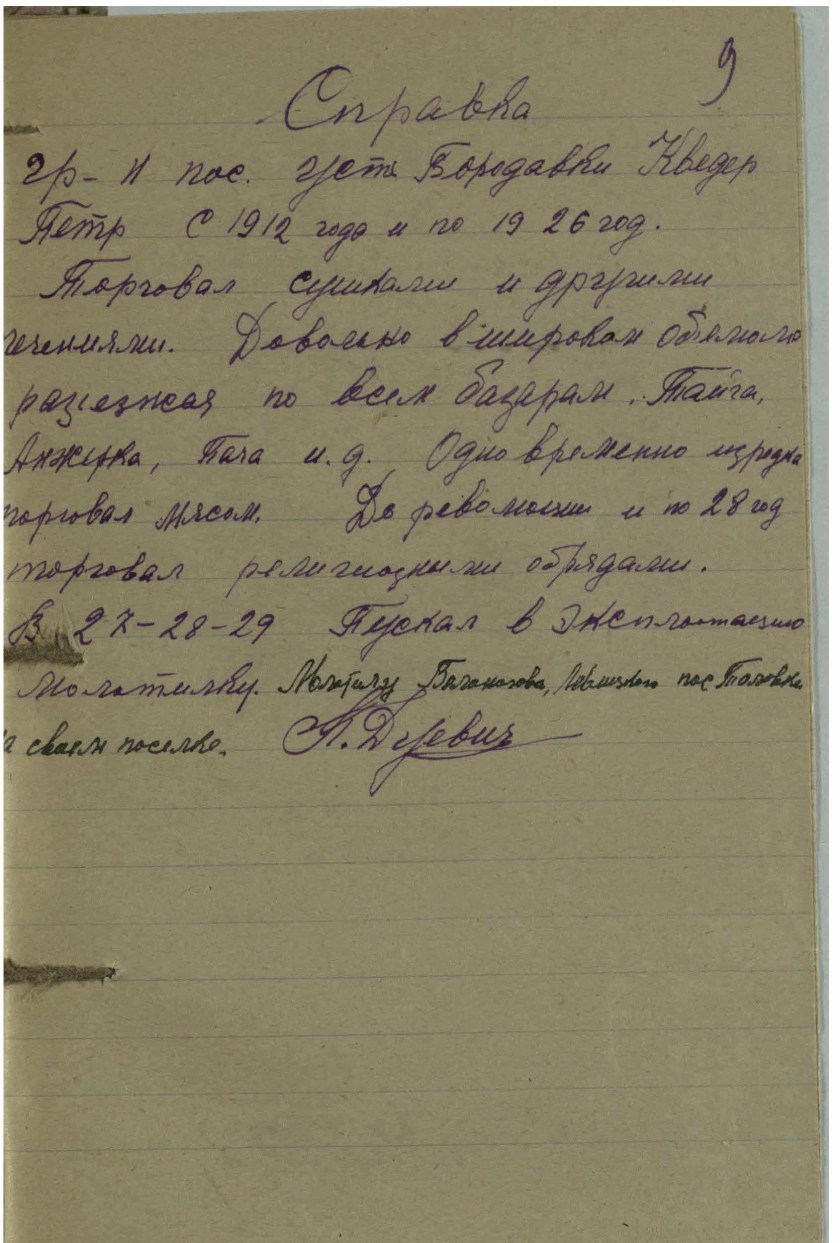 9
Справка
гр-н пос. Усть Бородавки Кведер
Петр С 1912 года и по 1926 год.
Торговал сушками и другими
печениями. Довольно в широком
разъезжая по всем базарам. Тайга,
Анжерка, Пача и.д. Одновременно изредка
торговал мясом. До революции и по 28 год
торговал религиозными обрядами.
В 27-28-29 Пускал в Эксплоатацию
молотилку. пос Таловки
на своем поселке.